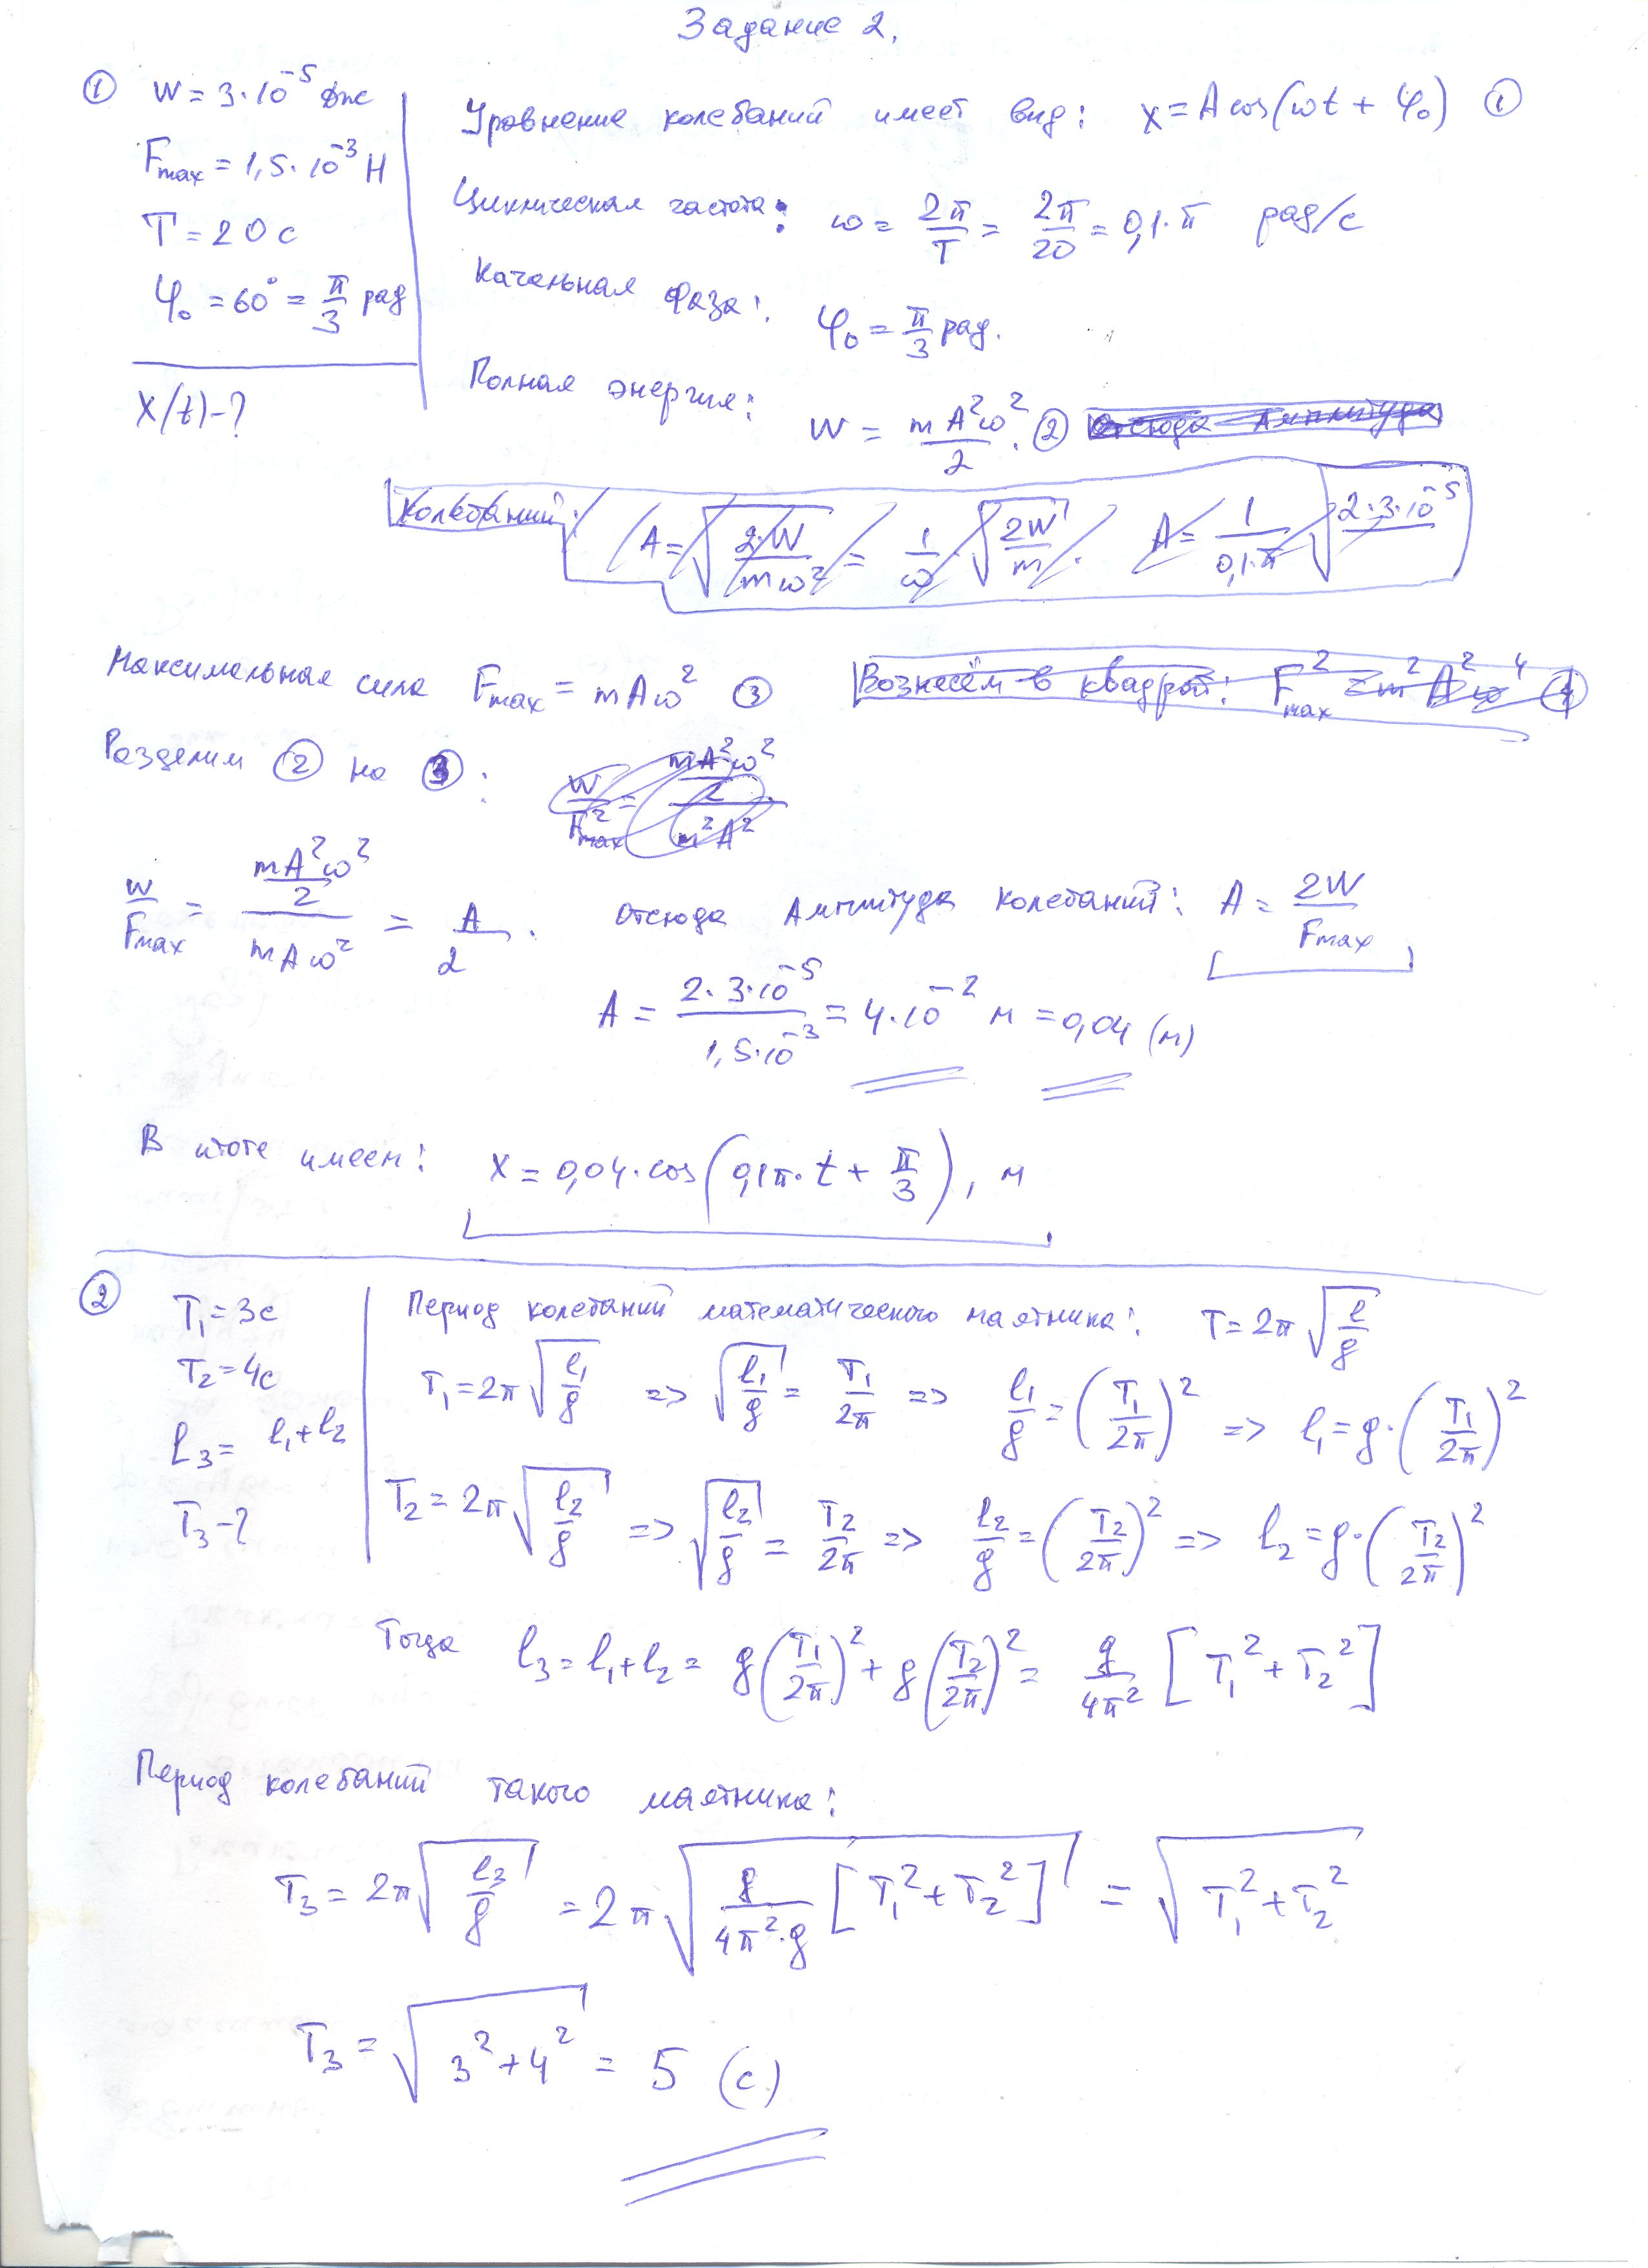 Задание 2.
① W = 3·10⁻⁵ Дж
F_max = 1,5·10⁻³ Н
T = 20 с
φ₀ = 60° = π/3 рад
x(t) - ?
Уровнение колебаний имеет вид: x = A cos(ωt + φ₀) ①
Циклическая частота: ω = 2π/T = 2π/20 = 0,1·π рад/с
Начальная фаза: φ₀ = π/3 рад.
Полная энергия: W = mA²ω²/2. ② Отсюда Амплитуда
Колебаний: A = √(2·W/(mω²)) = 1/ω √(2W/m). A = 1/(0,1·π) √(2·3·10⁻⁵
Максимальная сила F_max = mAω² ③ Вознесём в квадрат: F_max² = m²A²ω⁴ ④
Разделим ② на ③: W/F_max² = (mA²ω²/2)/(m²A²
W/F_max = (mA²ω²/2)/(mAω²) = A/2. Отсюда Амплитуда колебаний: A = 2W/F_max
A = 2·3·10⁻⁵/(1,5·10⁻³) = 4·10⁻² м = 0,04 (м)
В итоге имеем: x = 0,04·cos(0,1π·t + π/3), м
② T₁ = 3с
T₂ = 4с
l₃ = l₁+l₂
T₃ - ?
Период колебаний математического маятника: T = 2π√(l/g)
T₁ = 2π√(l₁/g) => √(l₁/g) = T₁/2π => l₁/g = (T₁/2π)² => l₁ = g·(T₁/2π)²
T₂ = 2π√(l₂/g) => √(l₂/g) = T₂/2π => l₂/g = (T₂/2π)² => l₂ = g·(T₂/2π)²
Тогда l₃ = l₁+l₂ = g(T₁/2π)² + g(T₂/2π)² = g/4π² [T₁² + T₂²]
Период колебаний такого маятника:
T₃ = 2π√(l₃/g) = 2π√(g/(4π²·g) [T₁² + T₂²]) = √(T₁² + T₂²)
T₃ = √(3² + 4²) = 5 (с)